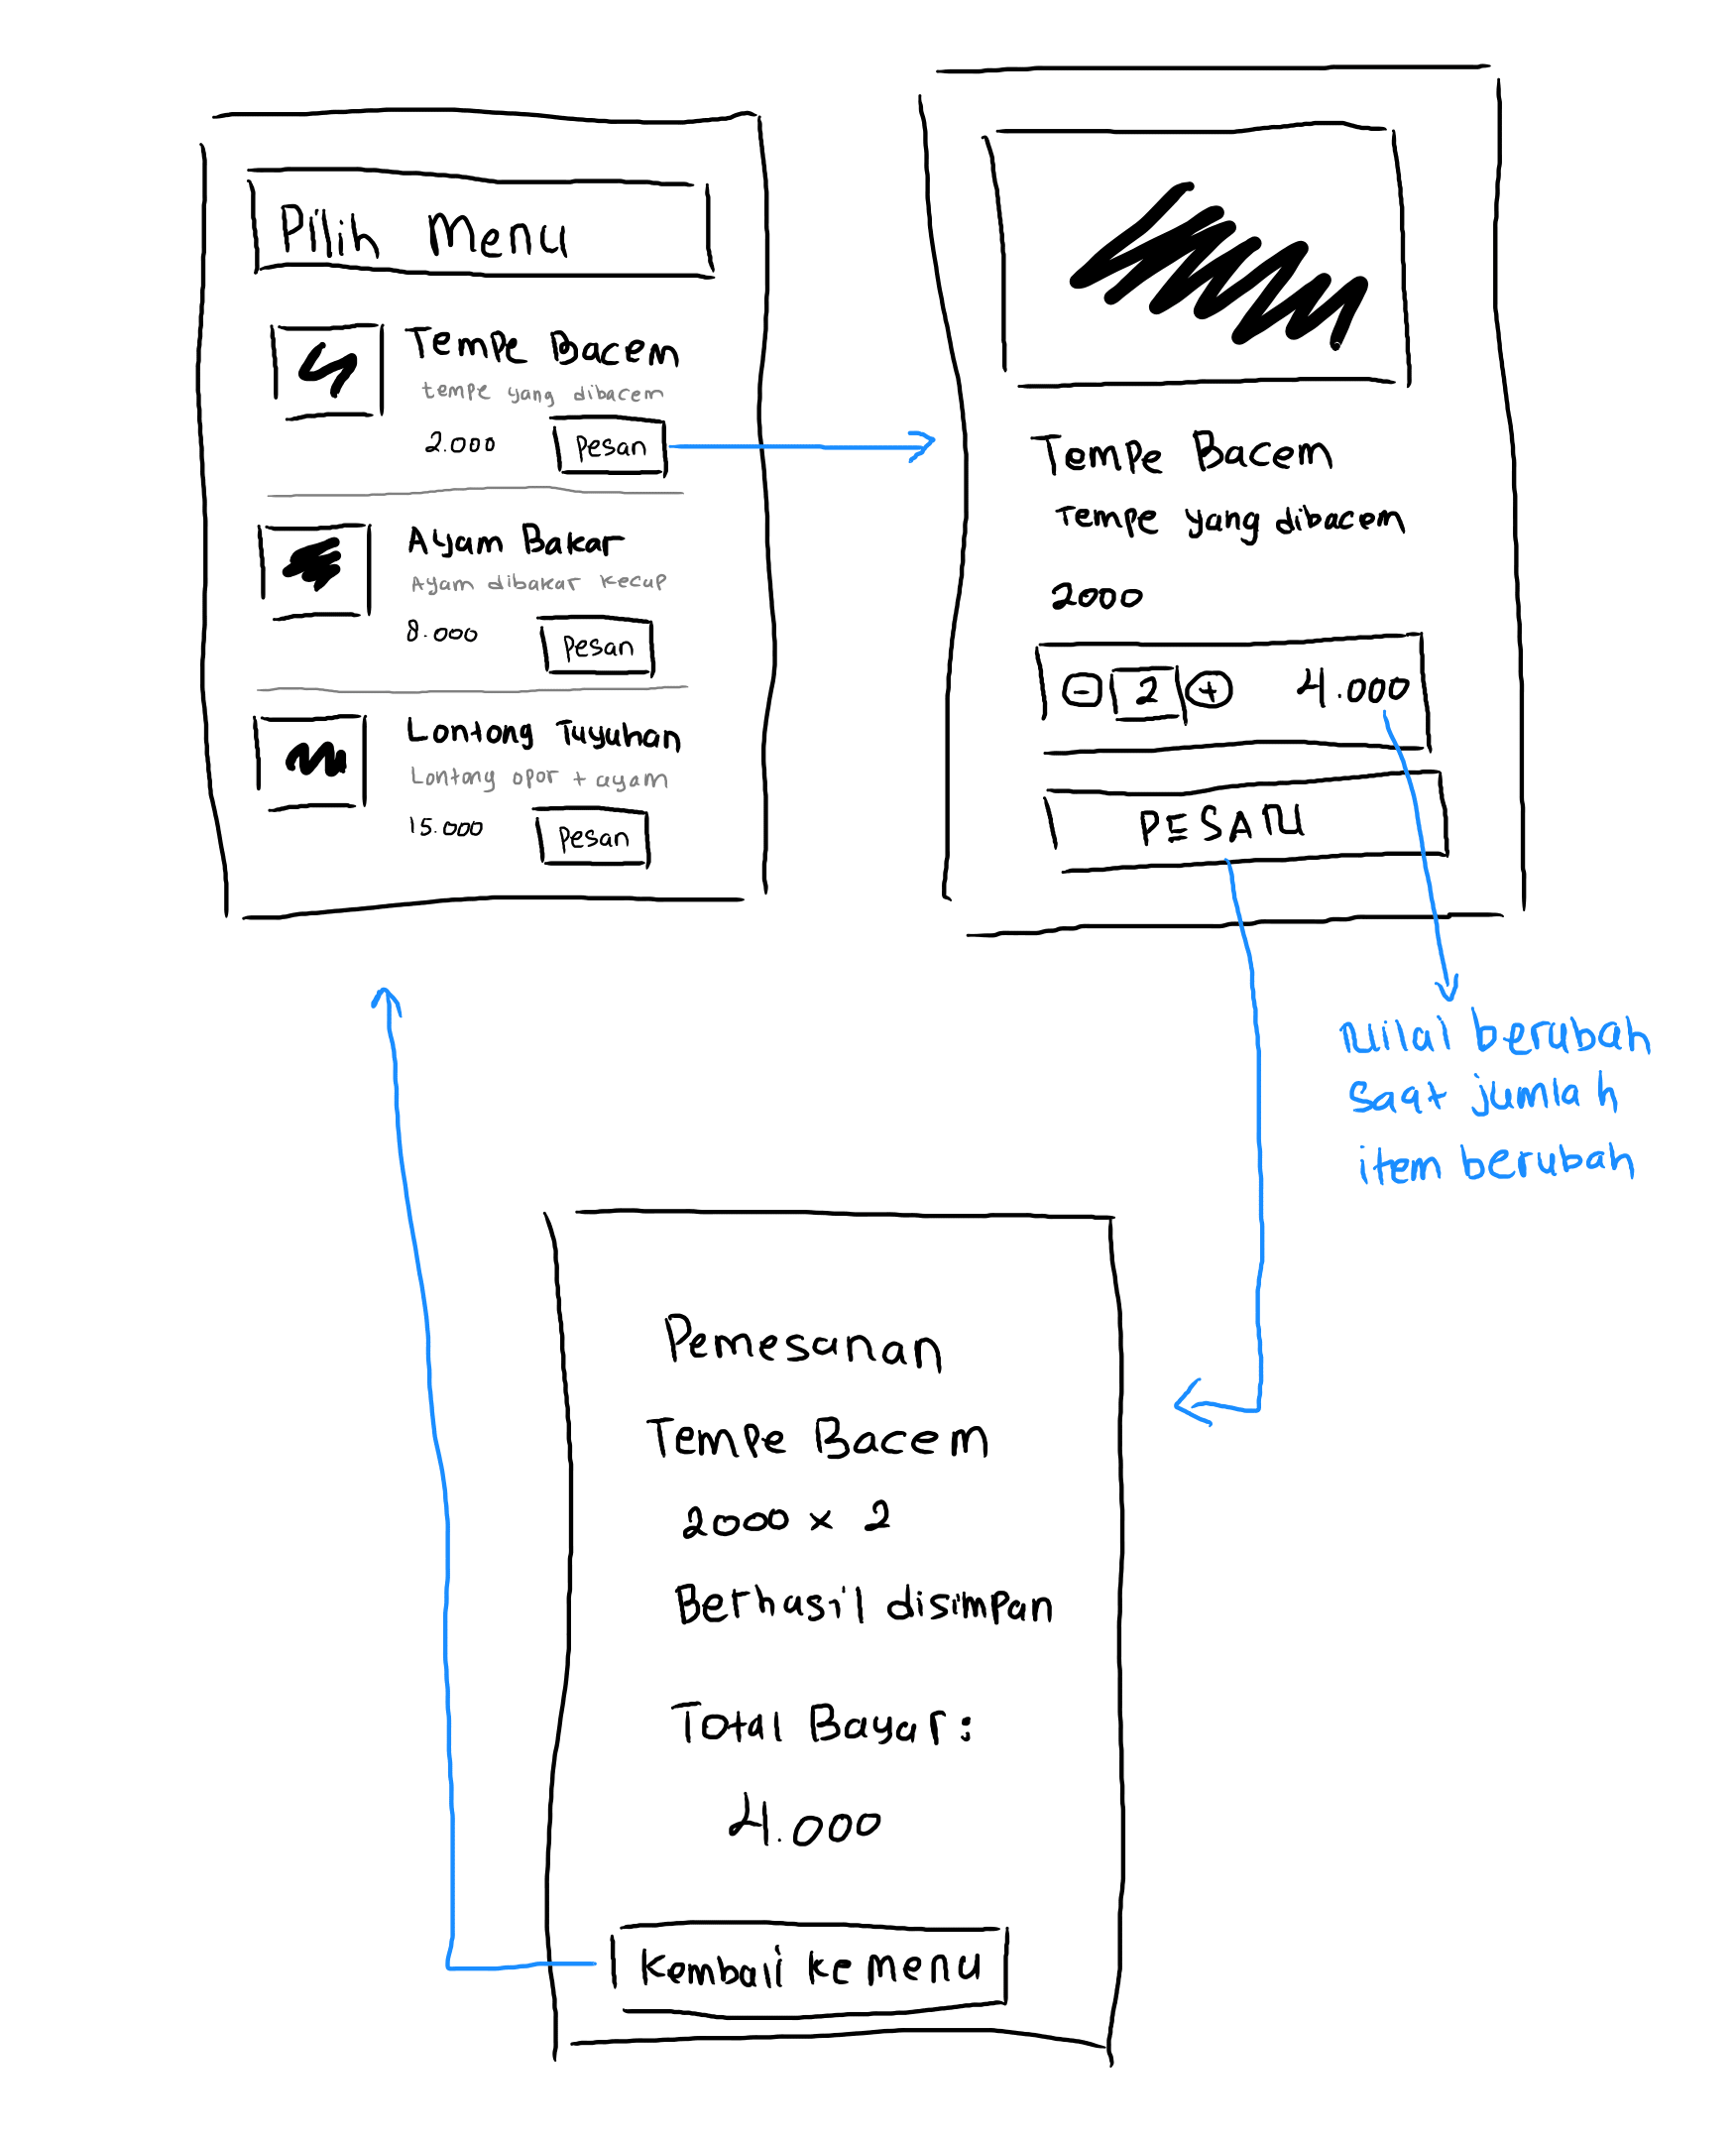 Pilih Menu
Tempe Bacem
tempe yang dibacem
2.000
Pesan
Ayam Bakar
Ayam dibakar kecap
8.000
Pesan
Lontong Tuyuhan
Lontong opor + ayam
15.000
Pesan
Tempe Bacem
Tempe yang dibacem
2000
- 2 + 4.000
PESAN
nilai berubah
saat jumlah
item berubah
Pemesanan
Tempe Bacem
2000 x 2
Berhasil disimpan
Total Bayar:
4.000
Kembali ke menu